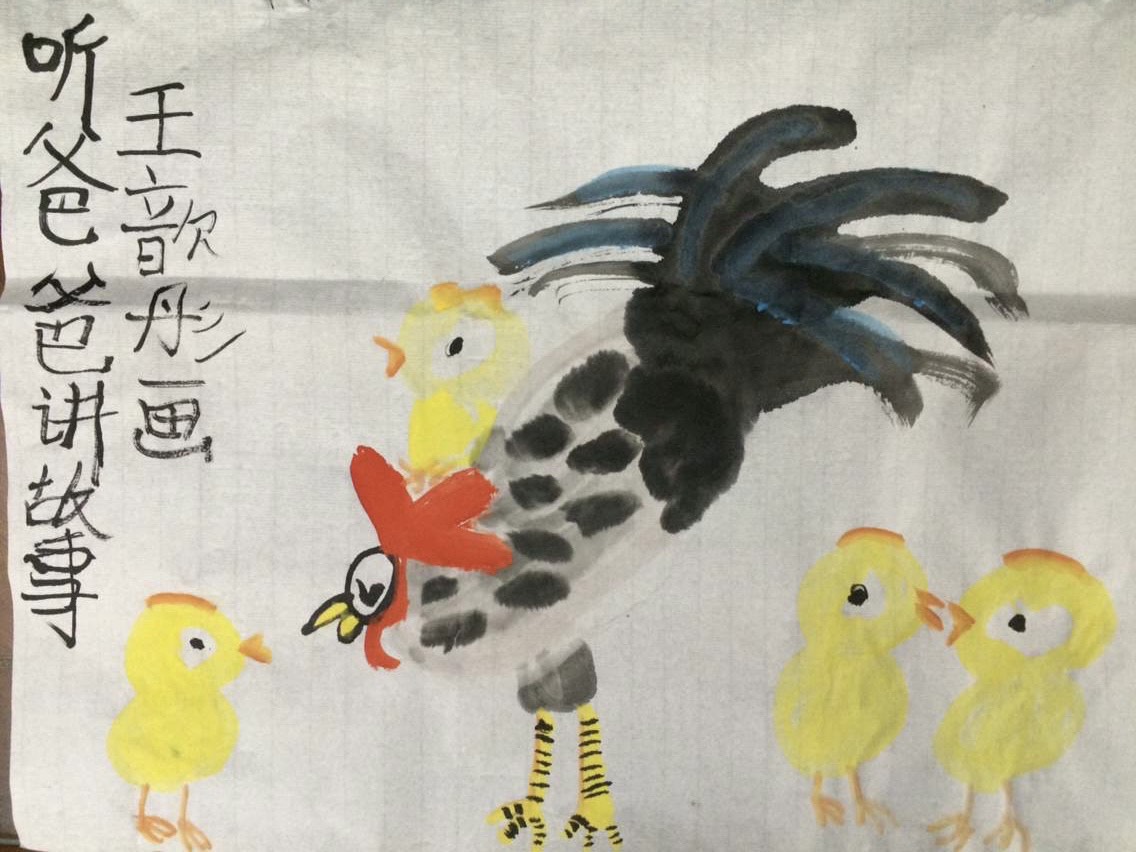 听爸爸讲故事
王歆彤画